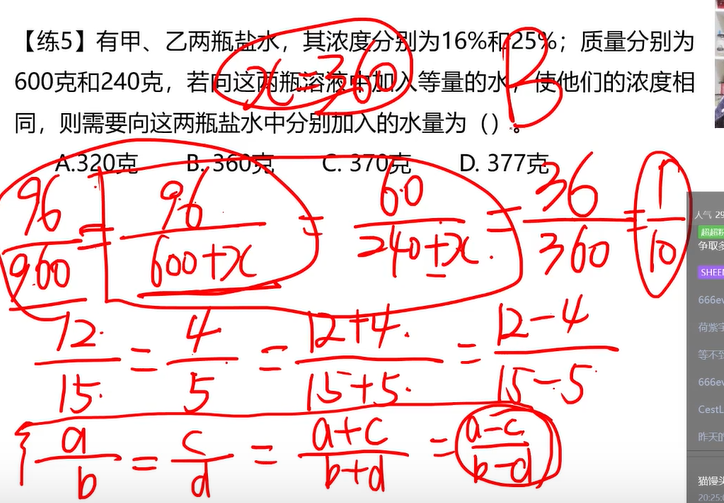 【练5】有甲、乙两瓶盐水，其浓度分别为16%和25%；质量分别为
600克和240克，若向这两瓶溶液中加入等量的水，使他们的浓度相
同，则需要向这两瓶盐水中分别加入的水量为（）。
x=360
B
A.320克 B. 360克 C. 370克 D. 377克
96/960 = 96/(600+x) = 60/(240+x) = 36/360 = 1/10
12/15 = 4/5 = (12+4)/(15+5) = (12-4)/(15-5)
a/b = c/d = (a+c)/(b+d) = (a-c)/(b-d)
人气 29
争取多
SHEE
666ev
等不到
666ev
CestL
昨天的